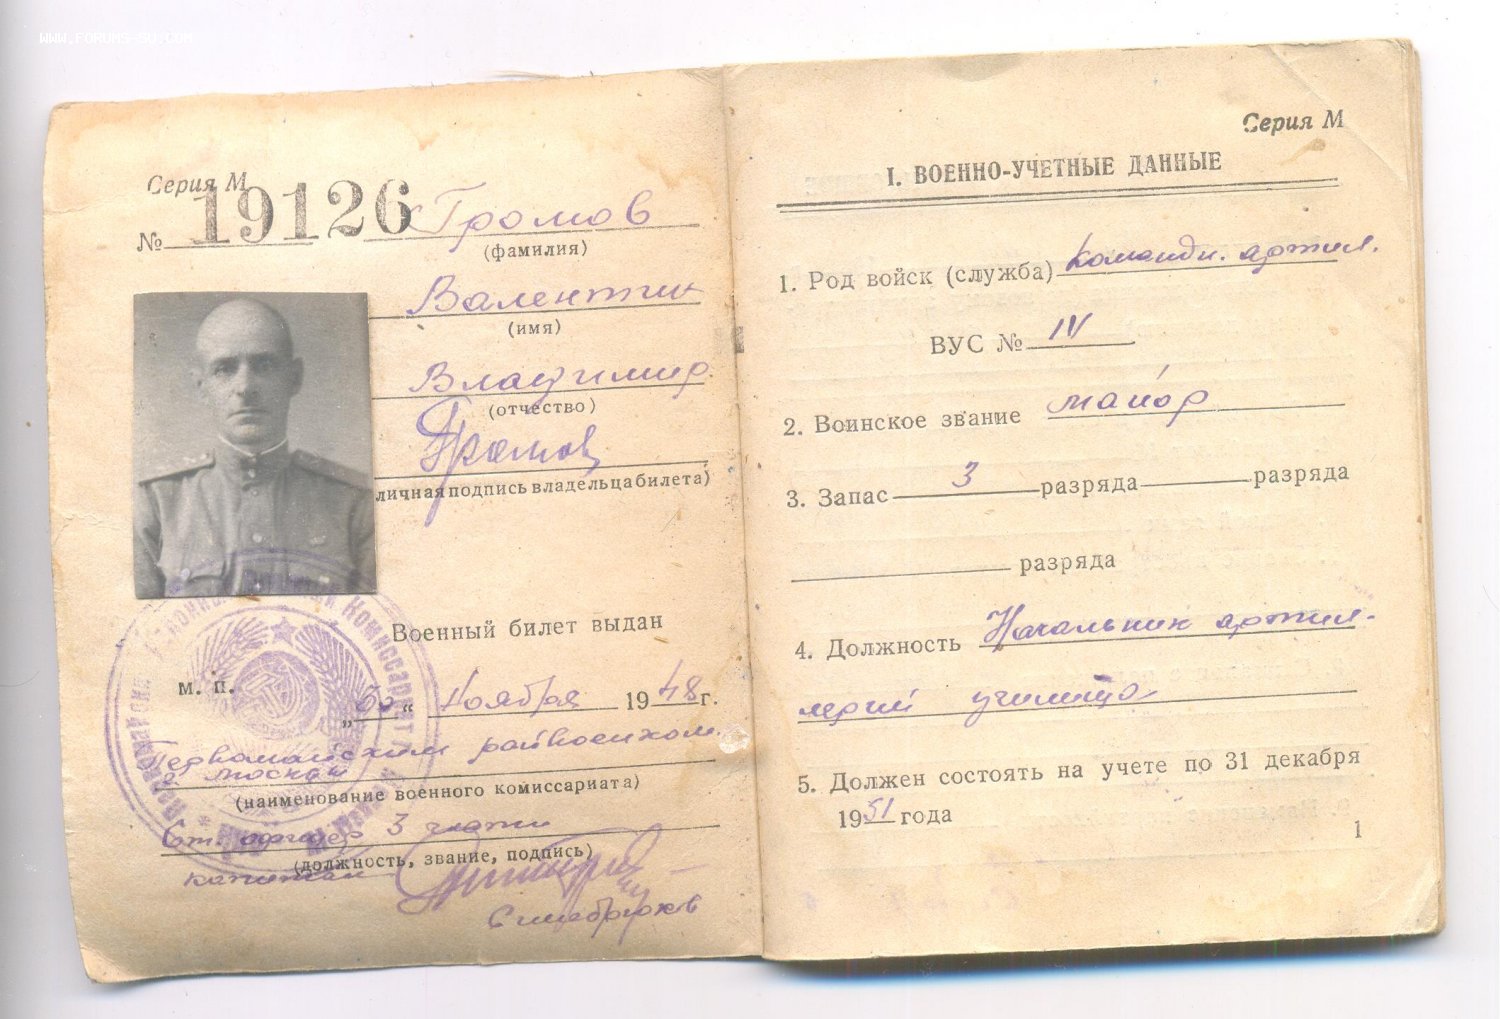 WWW.FORUMS-SU.COM
Серия М
№ 19126 Громов
(фамилия)
Валентин
(имя)
Владимир.
(отчество)
Громов
личная подпись владельца билета)
Военный билет выдан
м. п.
„30“ Ноября 1948 г.
Первомайским райвоенком.
г. Москвы
(наименование военного комиссариата)
Ст. офицер 3 части
(должность, звание, подпись)
капитан
Серия М
I. ВОЕННО-УЧЕТНЫЕ ДАННЫЕ
1. Род войск (служба) Командн. артил.
ВУС № IV
2. Воинское звание майор
3. Запас 3 разряда разряда
разряда
4. Должность Начальник артил-
лерии училища
5. Должен состоять на учете по 31 декабря
1951 года
1